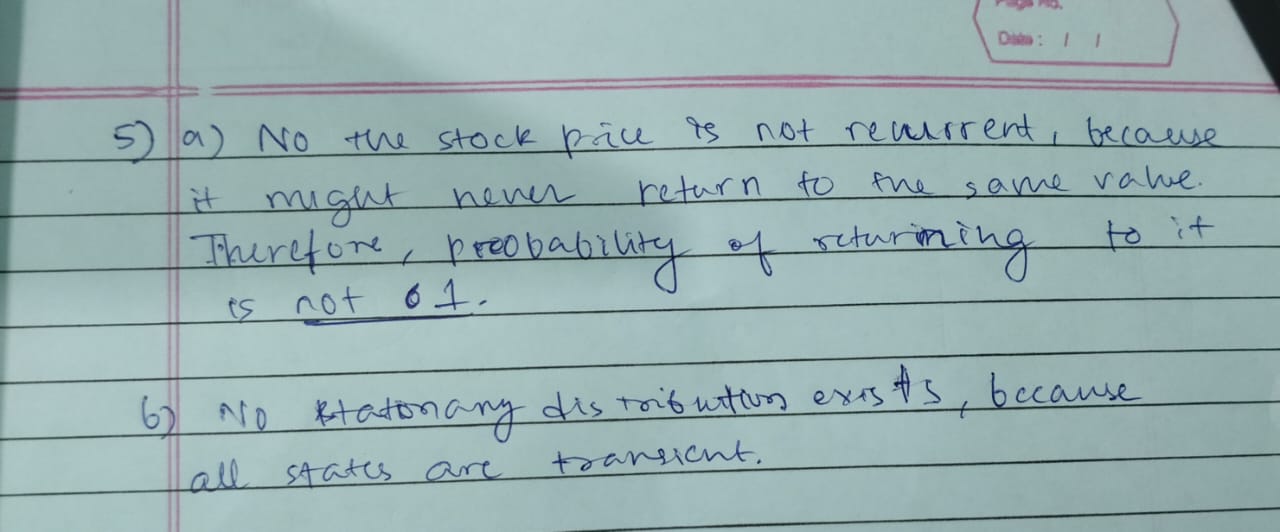 Page No.
Date: / /
5) a) No the stock price is not recurrent, because
it might never return to the same value.
Therefore, probability of returning to it
is not 1.
6) No statonary distribution exists, because
all states are transient.